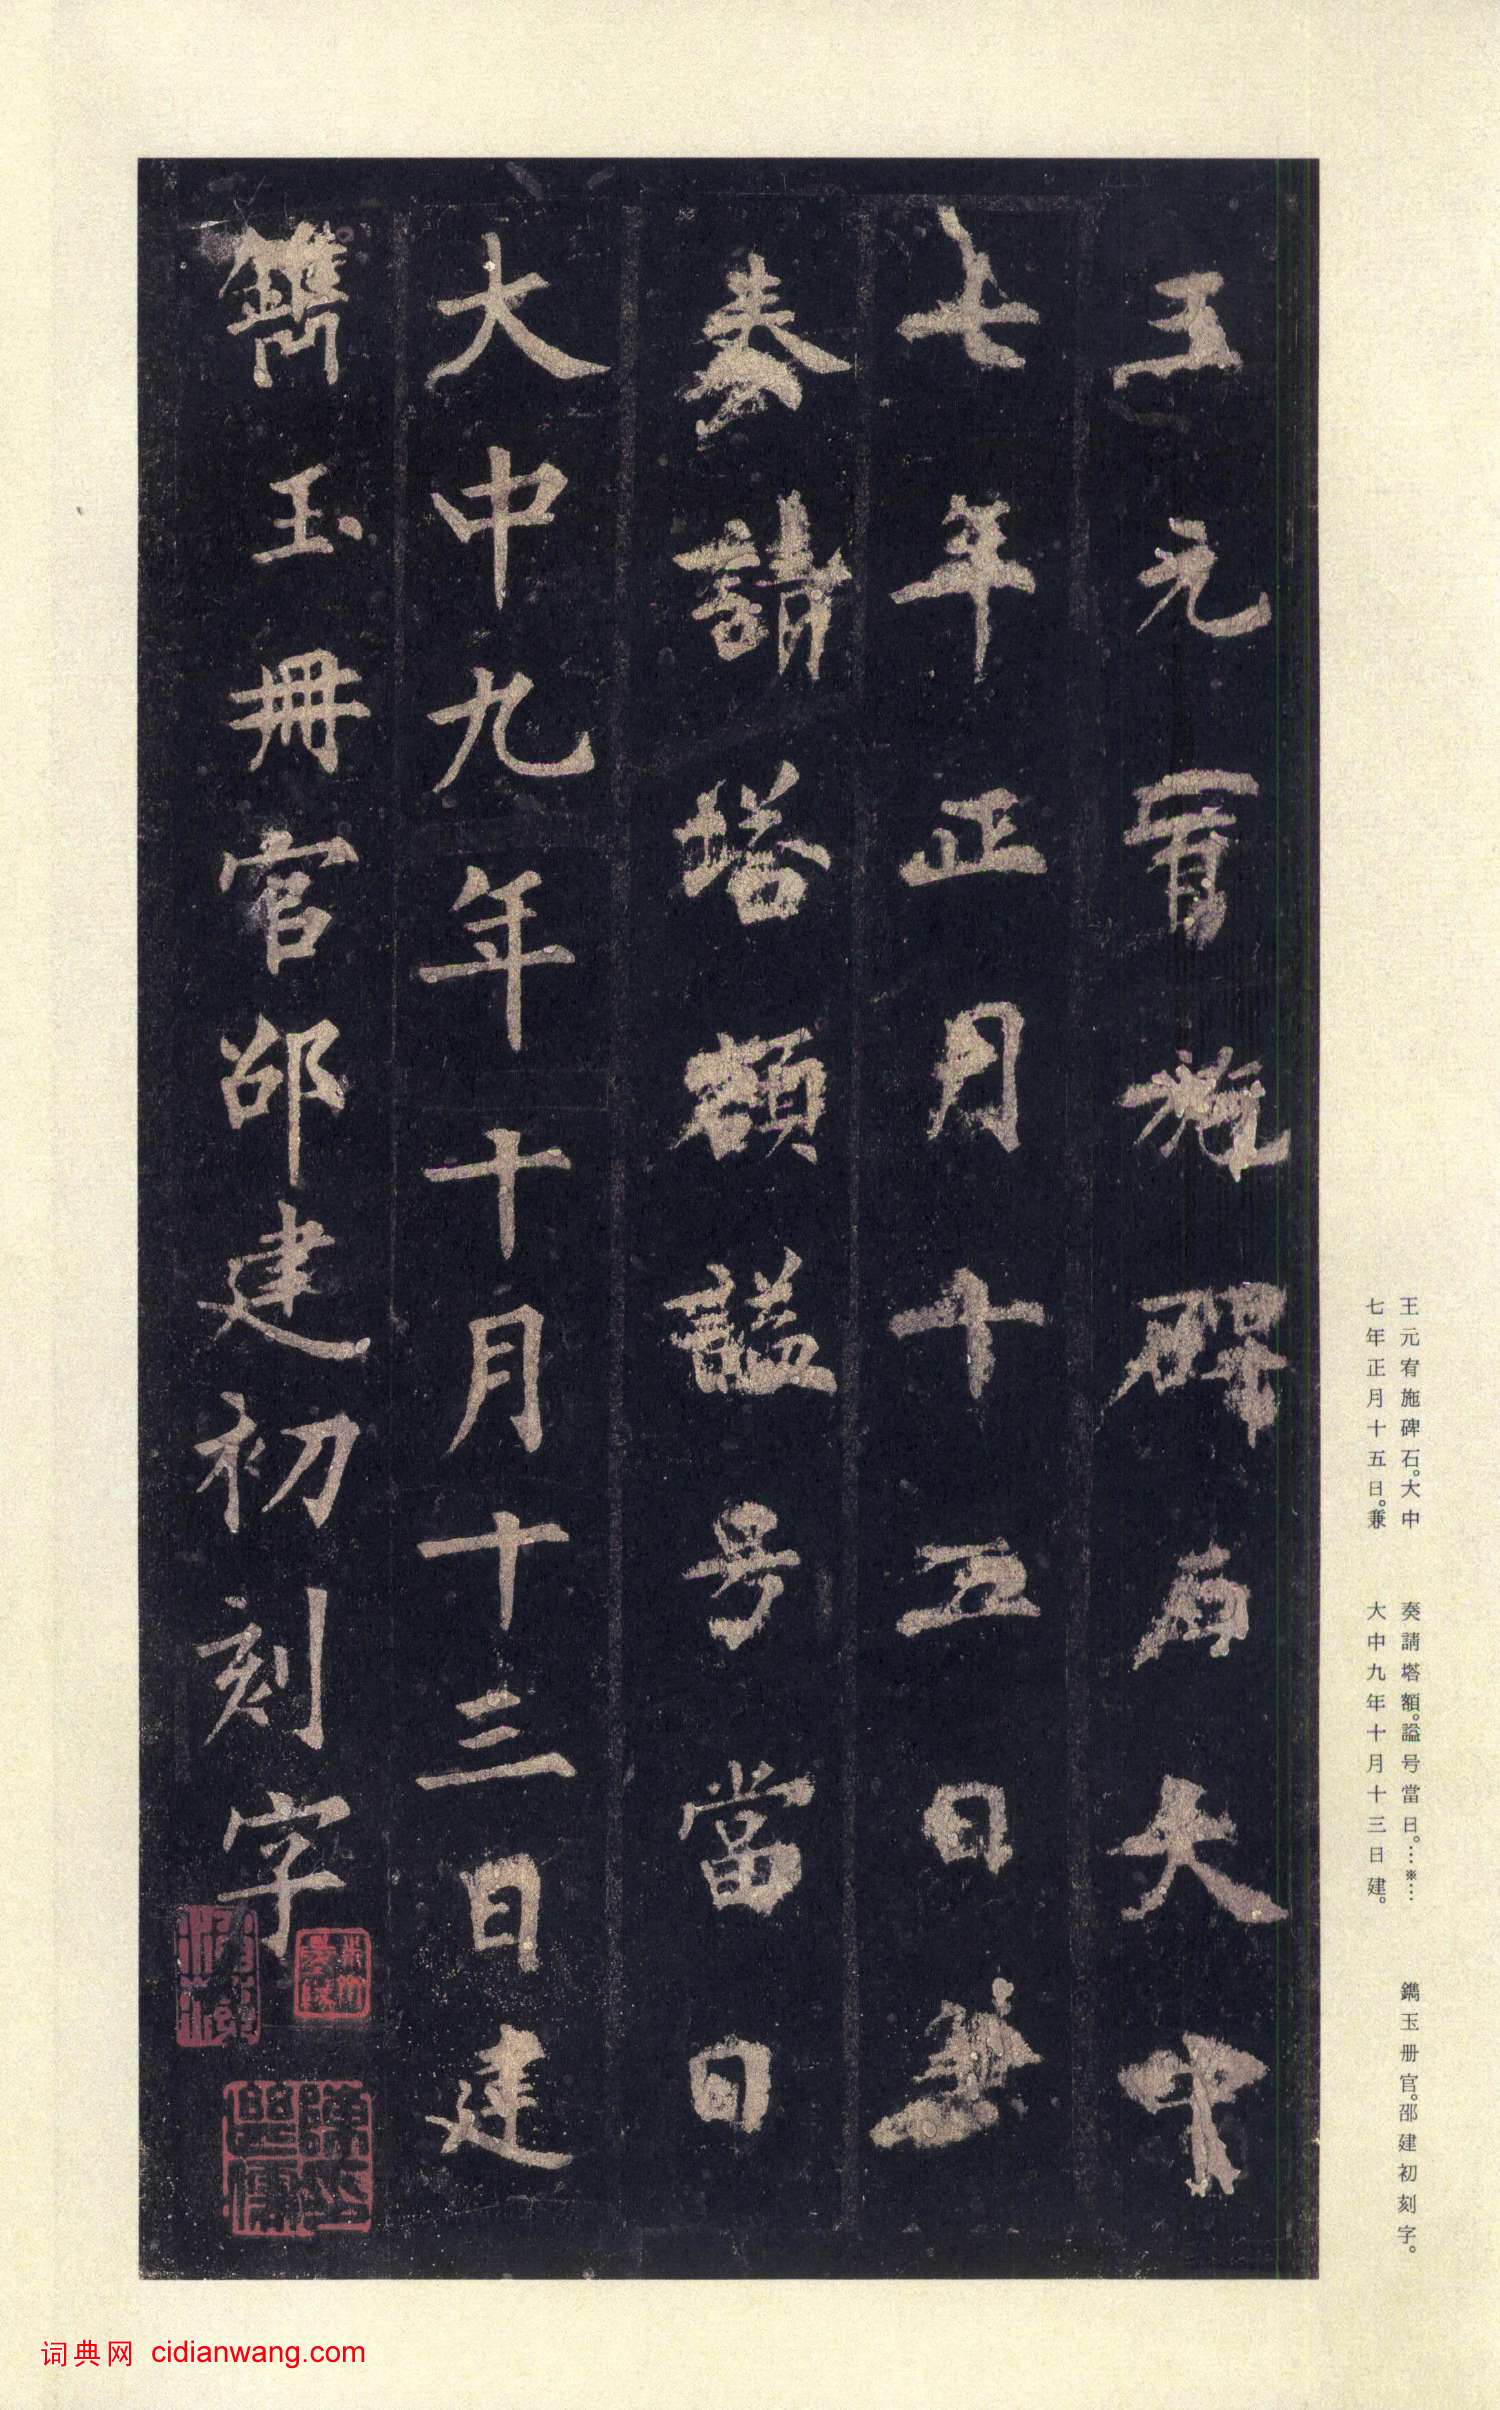 王元宥施碑石大中
七年正月十五日兼
奏請塔額謚号當日
大中九年十月十三日建
鐫玉冊官邵建初刻字
王元宥施碑石。大中
七年正月十五日。兼
奏請塔額。謚号當日。…※…
大中九年十月十三日建。
鐫玉册官。邵建初刻字。
词典网 cidianwang.com